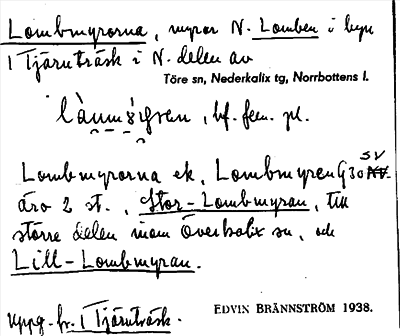 Lombmyrorna, myrar N. Lomben i byn
1 Tjärnträsk i N. delen av
Töre sn, Nederkalix tg, Norrbottens l.
bf. fem. pl.
Lombmyrorna ek. Lombmyren G30 SV
äro 2 st., Stor-Lombmyran, till
större delen inom Överkalix sn, och
Lill-Lombmyran.
Uppg. fr. 1 Tjärnträsk.
EDVIN BRÄNNSTRÖM 1938.